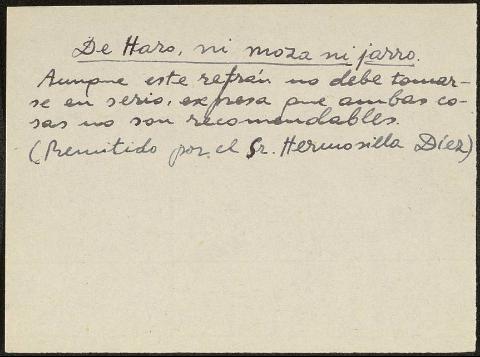 De Haro, ni moza ni jarro.
Aunque este refrán no debe tomar-
se en serio, expresa que ambas co-
sas no son recomendables.
(Remitido por el Sr. Hermosilla Díez)